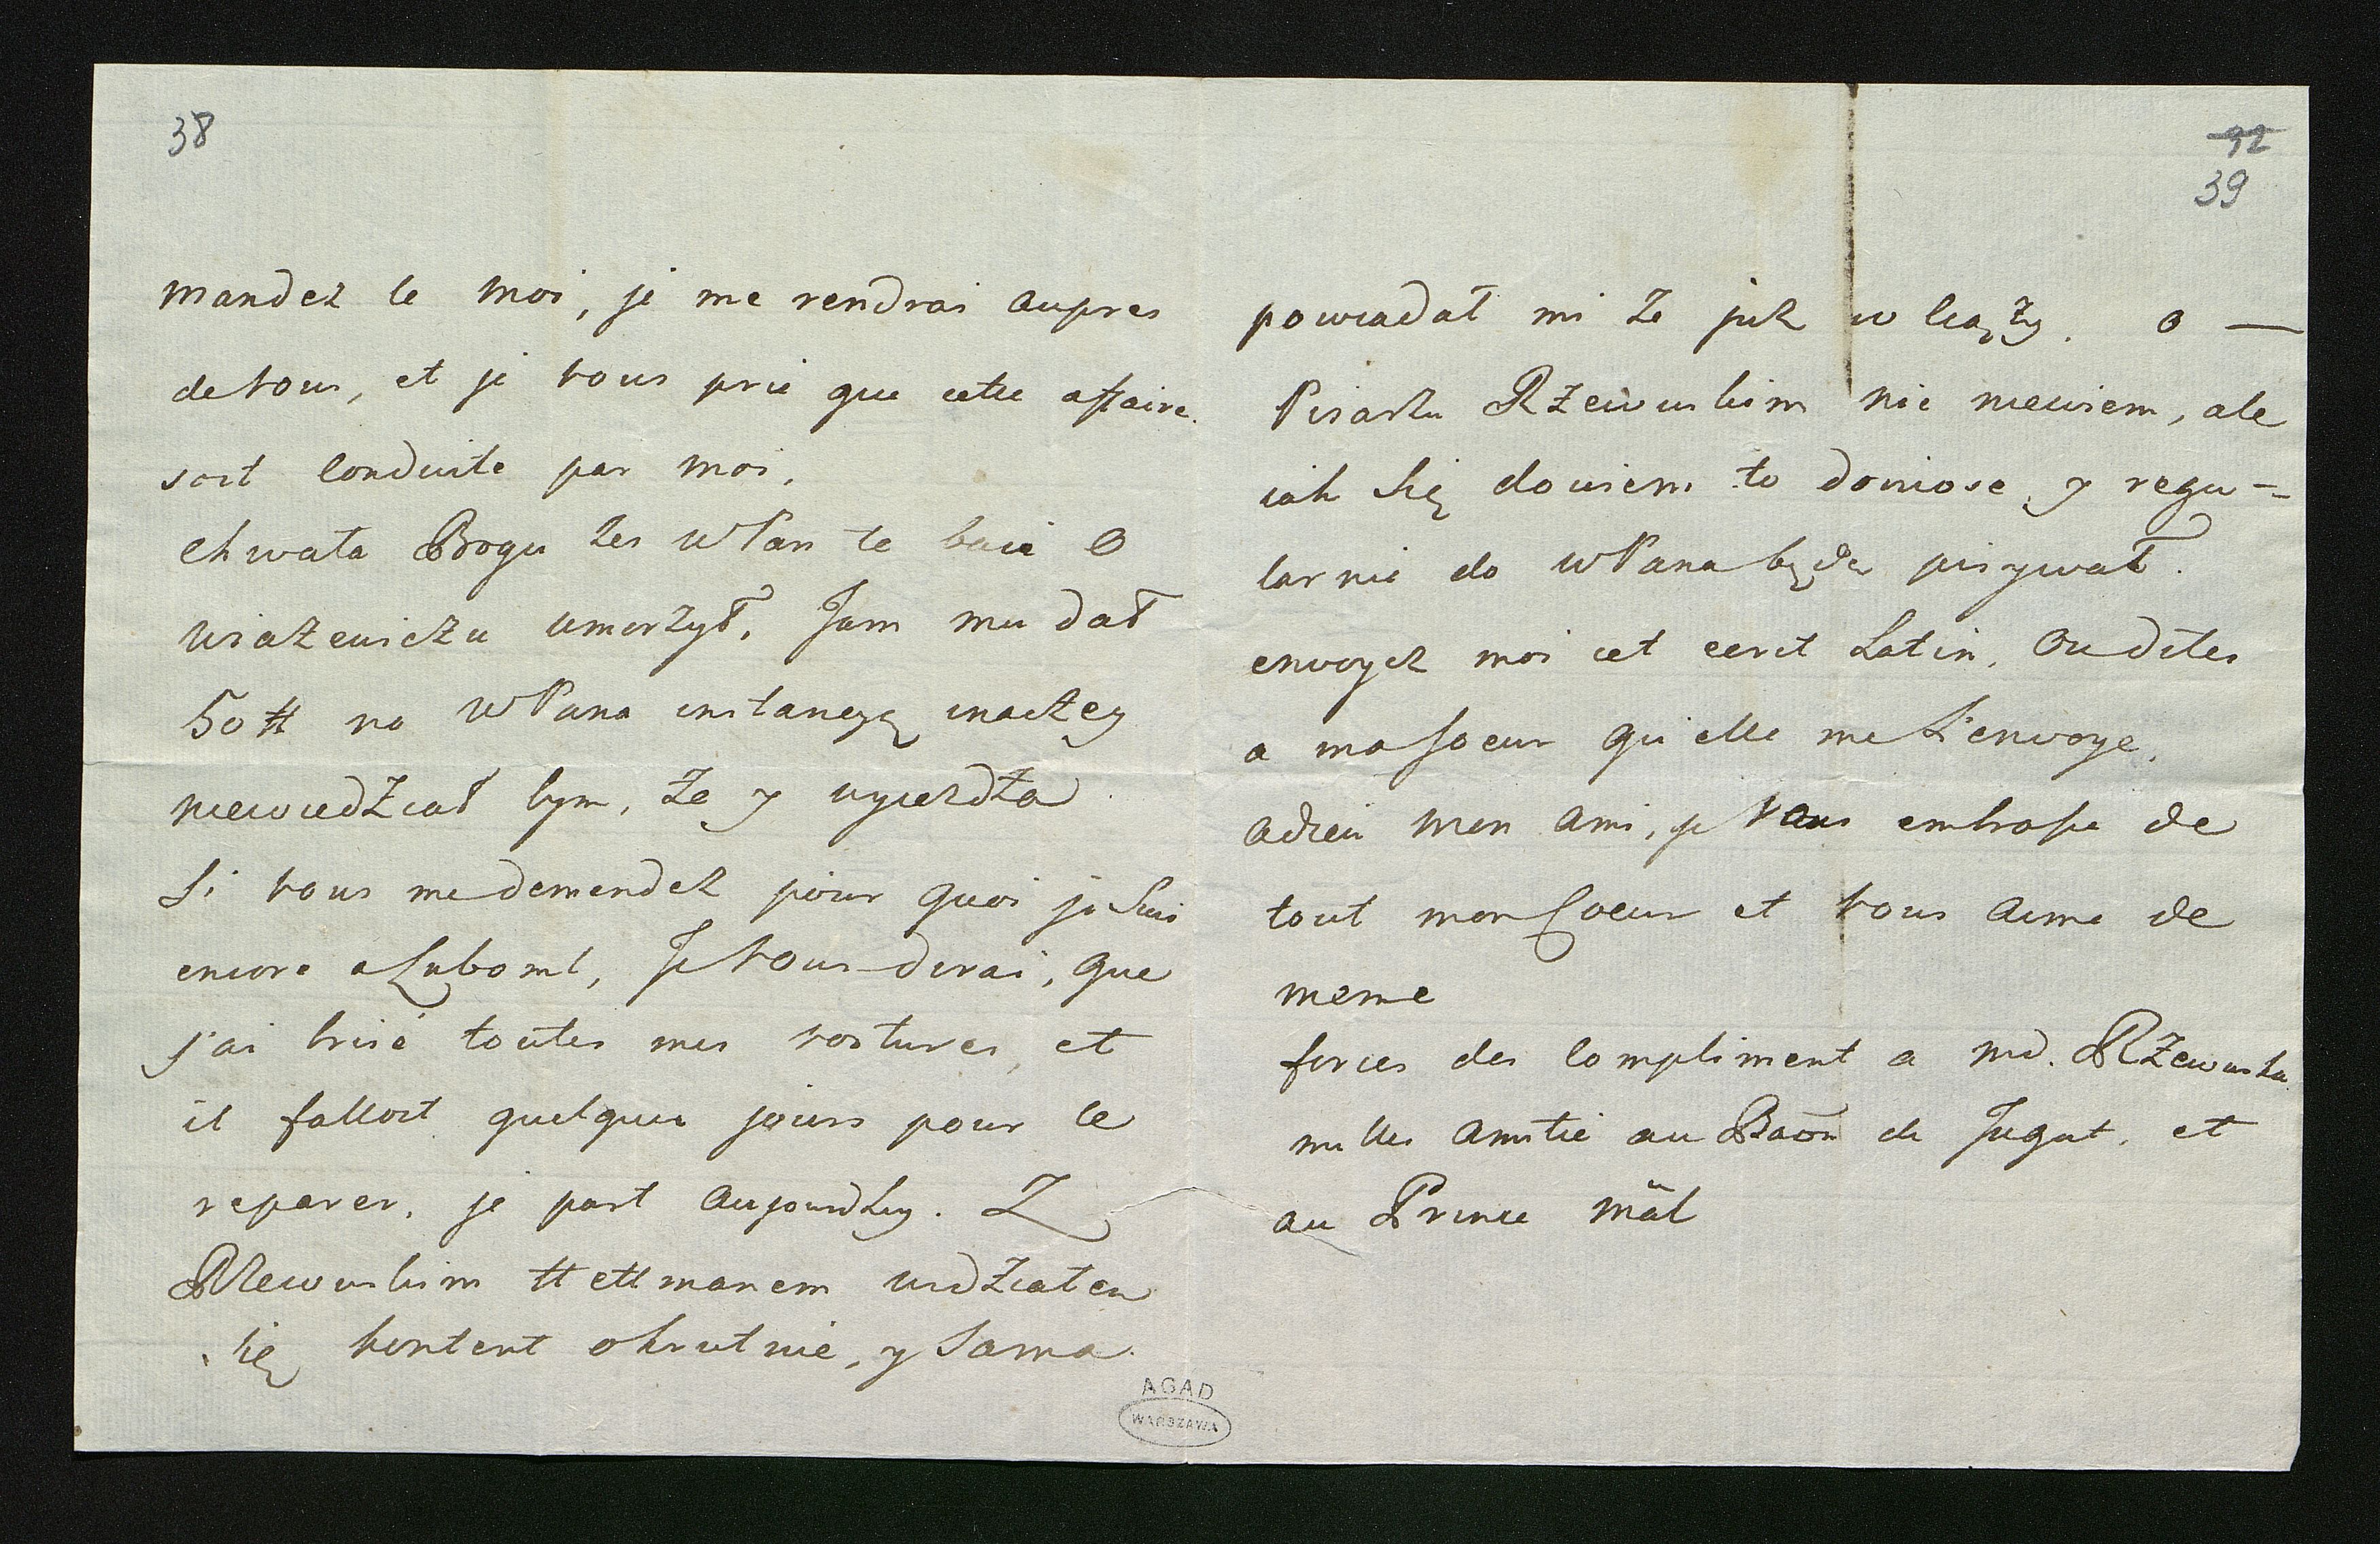 38
mandez le moi, je me rendrai aupres
de vous, et je vous prie que cette affaire
soit conduite par moi,
chwała Bogu żes WPan te baie o
wiażewiczu umorzył, Jam mu dał
50 # na WPana instancyą inaczey
niewiedział bym, że y uyiezdża
Si vous me demendez pour quoi je suis
encore a Luboml, je vous dirai, que
j'ai brisé toutes mes voitures, et
il falloit quelques jours pour le
reparer, je part aujourdhuy. Z
Rzewuskim Hettmanem widziałem
się kontent okrutnie, y sama
92
39
powiadał mi że już w ciąży. o —
Pisarzu Rżewuskim nic niewiem, ale
iak się dowiem to doniose, y regu-
larnie do WPana będę pisywał.
envoyez moi cet ecrit Latin, ou dites
a ma soeur qu'elle me L'envoye,
adieu mon ami, je vous embrasse de
tout mon Coeur et vous aime de
meme
forces des compliment a md. Rżewuska
milles amitié au Baõn de Tugut, et
au Prince mãl
AGAD
WARSZAWA